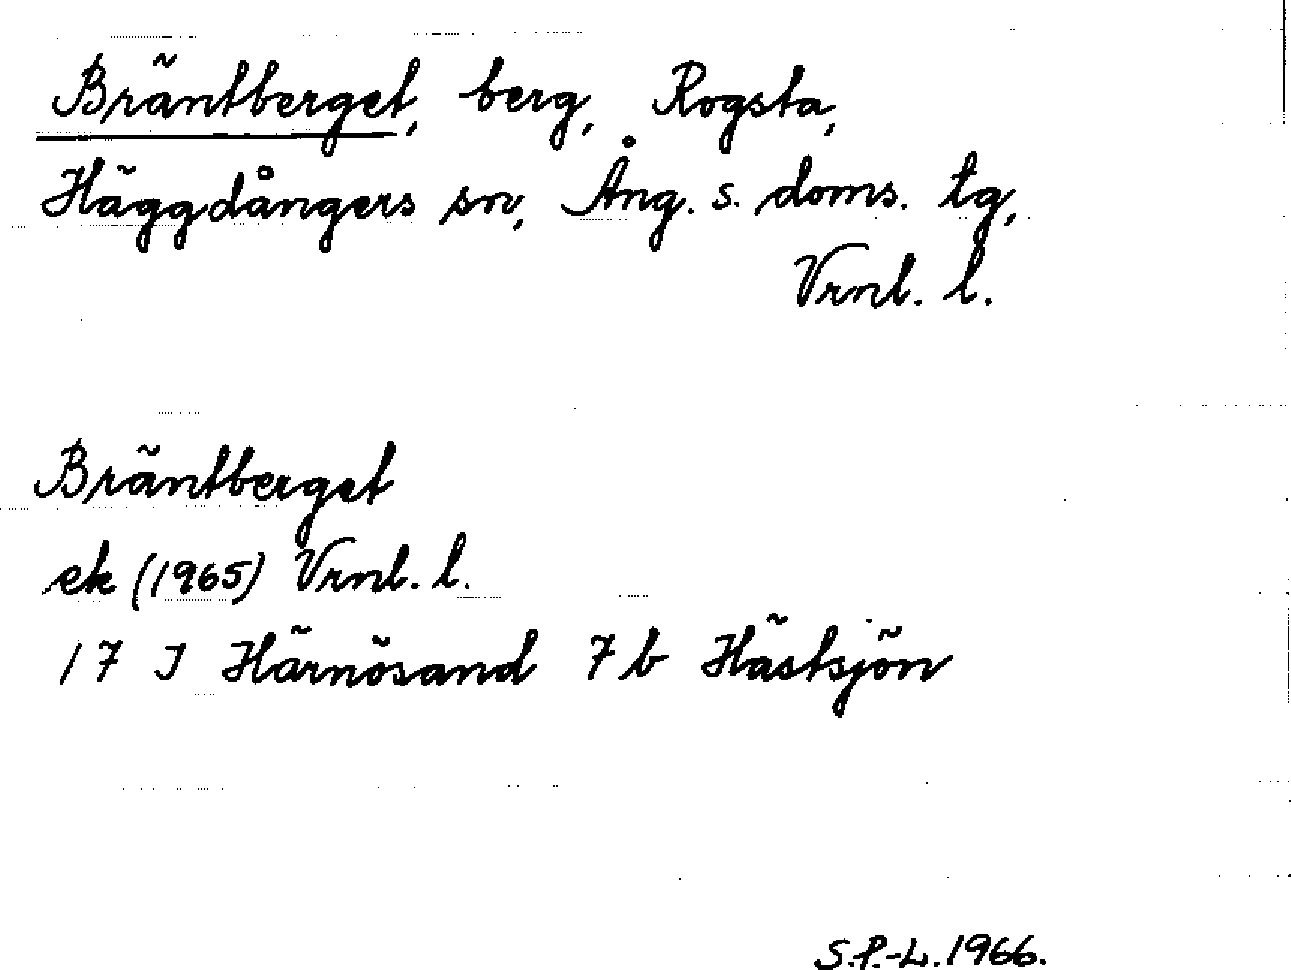 Bräntberget, berg, Rogsta,
Häggdångers sn, Ång. s. doms. tg,
Vrnl. l.
Bräntberget
ek (1965) Vrnl. l.
17 I Härnösand 7 b Hästsjön
S.P.-L. 1966.